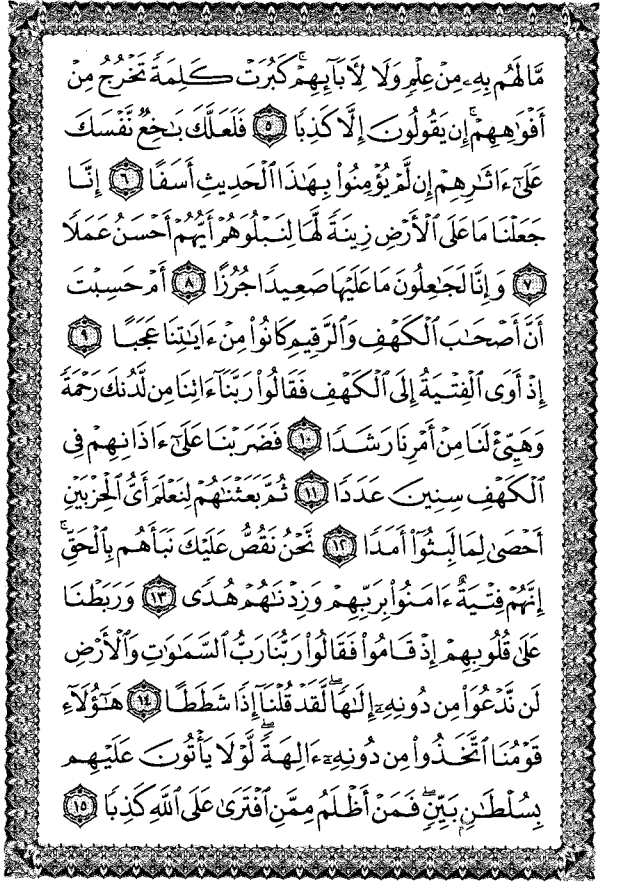 مَّا لَهُم بِهِۦ مِنْ عِلْمٍ وَلَا لِأَبَآئِهِمْ ۚ كَبُرَتْ كَلِمَةً تَخْرُجُ مِنْ
أَفْوَٰهِهِمْ ۚ إِن يَقُولُونَ إِلَّا كَذِبًا ۝٥ فَلَعَلَّكَ بَٰخِعٌ نَّفْسَكَ
عَلَىٰٓ ءَاثَٰرِهِمْ إِن لَّمْ يُؤْمِنُوا۟ بِهَٰذَا ٱلْحَدِيثِ أَسَفًا ۝٦ إِنَّا
جَعَلْنَا مَا عَلَى ٱلْأَرْضِ زِينَةً لَّهَا لِنَبْلُوَهُمْ أَيُّهُمْ أَحْسَنُ عَمَلًا
۝٧ وَإِنَّا لَجَٰعِلُونَ مَا عَلَيْهَا صَعِيدًا جُرُزًا ۝٨ أَمْ حَسِبْتَ
أَنَّ أَصْحَٰبَ ٱلْكَهْفِ وَٱلرَّقِيمِ كَانُوا۟ مِنْ ءَايَٰتِنَا عَجَبًا ۝٩
إِذْ أَوَى ٱلْفِتْيَةُ إِلَى ٱلْكَهْفِ فَقَالُوا۟ رَبَّنَآ ءَاتِنَا مِن لَّدُنكَ رَحْمَةً
وَهَيِّئْ لَنَا مِنْ أَمْرِنَا رَشَدًا ۝١٠ فَضَرَبْنَا عَلَىٰٓ ءَاذَانِهِمْ فِى
ٱلْكَهْفِ سِنِينَ عَدَدًا ۝١١ ثُمَّ بَعَثْنَٰهُمْ لِنَعْلَمَ أَىُّ ٱلْحِزْبَيْنِ
أَحْصَىٰ لِمَا لَبِثُوٓا۟ أَمَدًا ۝١٢ نَّحْنُ نَقُصُّ عَلَيْكَ نَبَأَهُم بِٱلْحَقِّ ۚ
إِنَّهُمْ فِتْيَةٌ ءَامَنُوا۟ بِرَبِّهِمْ وَزِدْنَٰهُمْ هُدًى ۝١٣ وَرَبَطْنَا
عَلَىٰ قُلُوبِهِمْ إِذْ قَامُوا۟ فَقَالُوا۟ رَبُّنَا رَبُّ ٱلسَّمَٰوَٰتِ وَٱلْأَرْضِ
لَن نَّدْعُوَا۟ مِن دُونِهِۦٓ إِلَٰهًا ۖ لَّقَدْ قُلْنَآ إِذًا شَطَطًا ۝١٤ هَٰٓؤُلَآءِ
قَوْمُنَا ٱتَّخَذُوا۟ مِن دُونِهِۦٓ ءَالِهَةً ۖ لَّوْلَا يَأْتُونَ عَلَيْهِم
بِسُلْطَٰنٍۭ بَيِّنٍ ۖ فَمَنْ أَظْلَمُ مِمَّنِ ٱفْتَرَىٰ عَلَى ٱللَّهِ كَذِبًا ۝١٥